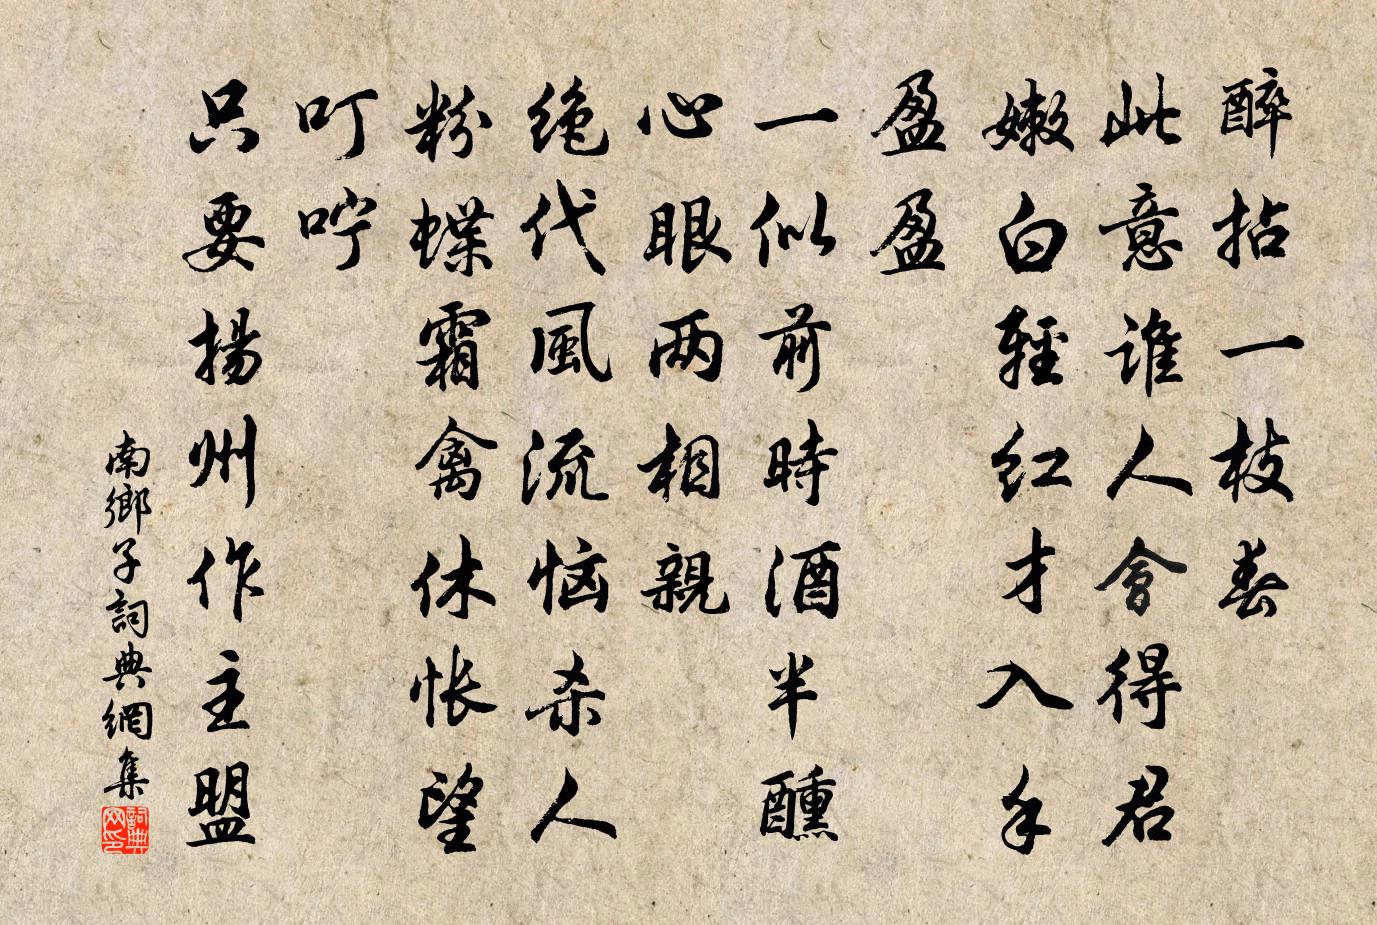 醉拈一枝春
此意誰人會得君
嫩白輕红才入手
盈盈
一似前時酒半醺
心眼两相親
绝代風流恼杀人
粉蝶霜禽休怅望
叮咛
只要揚州作主盟
南鄉子詞典網集
詞典网印